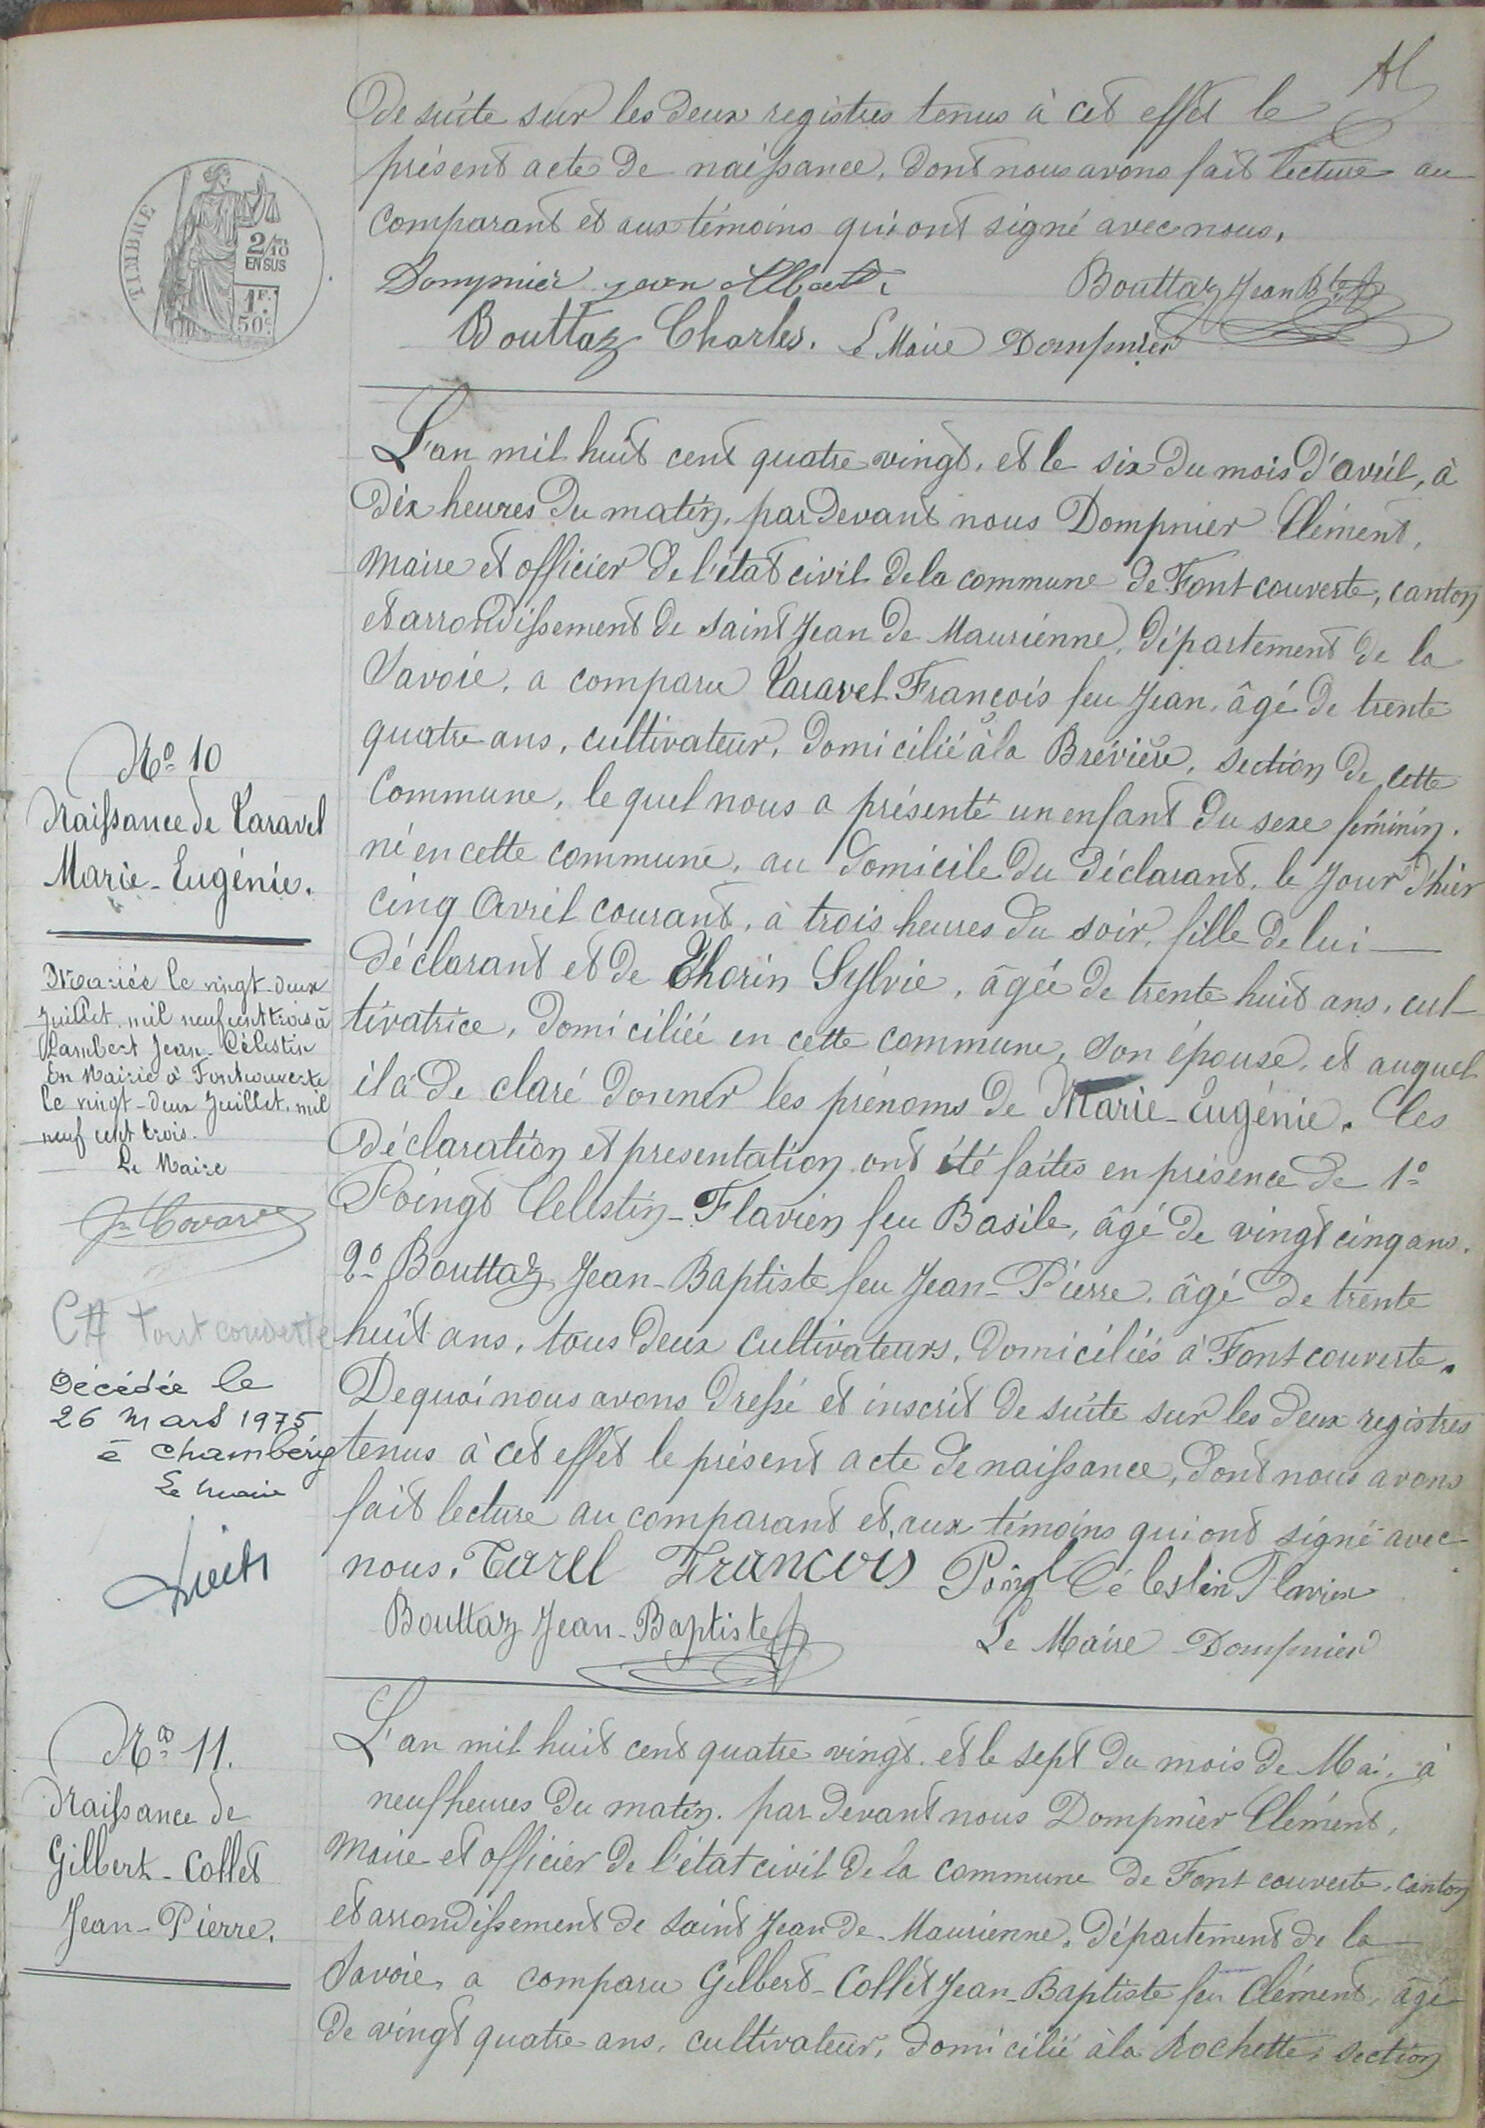 de suite sur les deux registres tenus à cet effet le
présent acte de naissance, dont nous avons fait lecture au
comparant et aux témoins qui ont signé avec nous.
Dompnier jean Albert. Bouttaz Jean Bte
Bouttaz Charles. Le Maire Dompnier
TIMBRE
2/10
EN SUS
1F.
50c.
L'an mil huit cent quatre vingt, et le six du mois d'avril, à
dix heures du matin, par devant nous Dompnier Clément,
maire et officier de l'état civil de la commune de Fontcouverte, canton
et arrondissement de Saint Jean de Maurienne, département de la
Savoie, a comparu Taravel François feu Jean, âgé de trente
quatre ans, cultivateur, domicilié à la Brévière, section de cette
Commune, lequel nous a présenté un enfant du sexe féminin,
né en cette commune, au domicile du déclarant, le jour d'hier
cinq avril courant, à trois heures du soir, fille de lui
déclarant et de Thorin Sylvie, âgée de trente huit ans, cul-
tivatrice, domiciliée en cette commune, son épouse, et auquel
il a déclaré donner les prénoms de Marie-Eugénie. Ces
déclaration et presentation ont été faites en présence de 1°
Poingt Celestin-Flavien feu Basile, âgé de vingt cinq ans.
2° Bouttaz Jean-Baptiste feu Jean-Pierre, âgé de trente
huit ans, tous deux cultivateurs, domiciliés à Fontcouverte.
De quoi nous avons dressé et inscrit de suite sur les deux registres
tenus à cet effet le présent acte de naissance, dont nous avons
fait lecture au comparant et aux témoins qui ont signé avec
nous. Tarel Francois Poingt Célestin Flavien
Bouttaz Jean-Baptiste Le Maire Dompnier
No 10
Naissance de Taravel
Marie-Eugénie.
Mariée le vingt-deux
Juillet, mil neuf cent trois à
Lambert Jean-Célestin
En Mairie à Fontcouverte
le vingt-deux Juillet, mil
neuf cent trois.
Le Maire
CH Fontcouverte
Décédée le
26 Mars 1975
à Chambéry
Le Maire
No 11.
Naissance de
Gilbert-Collet
Jean-Pierre.
L'an mil huit cent quatre vingt, et le sept du mois de Mai, à
neuf heures du matin, par devant nous Dompnier Clément,
maire et officier de l'état civil de la commune de Fontcouverte, canton
et arrondissement de Saint Jean de Maurienne, département de la
Savoie, a comparu Gilbert-Collet Jean-Baptiste feu Clément, âgé
de vingt quatre ans, cultivateur, domicilié à la Rochette, section